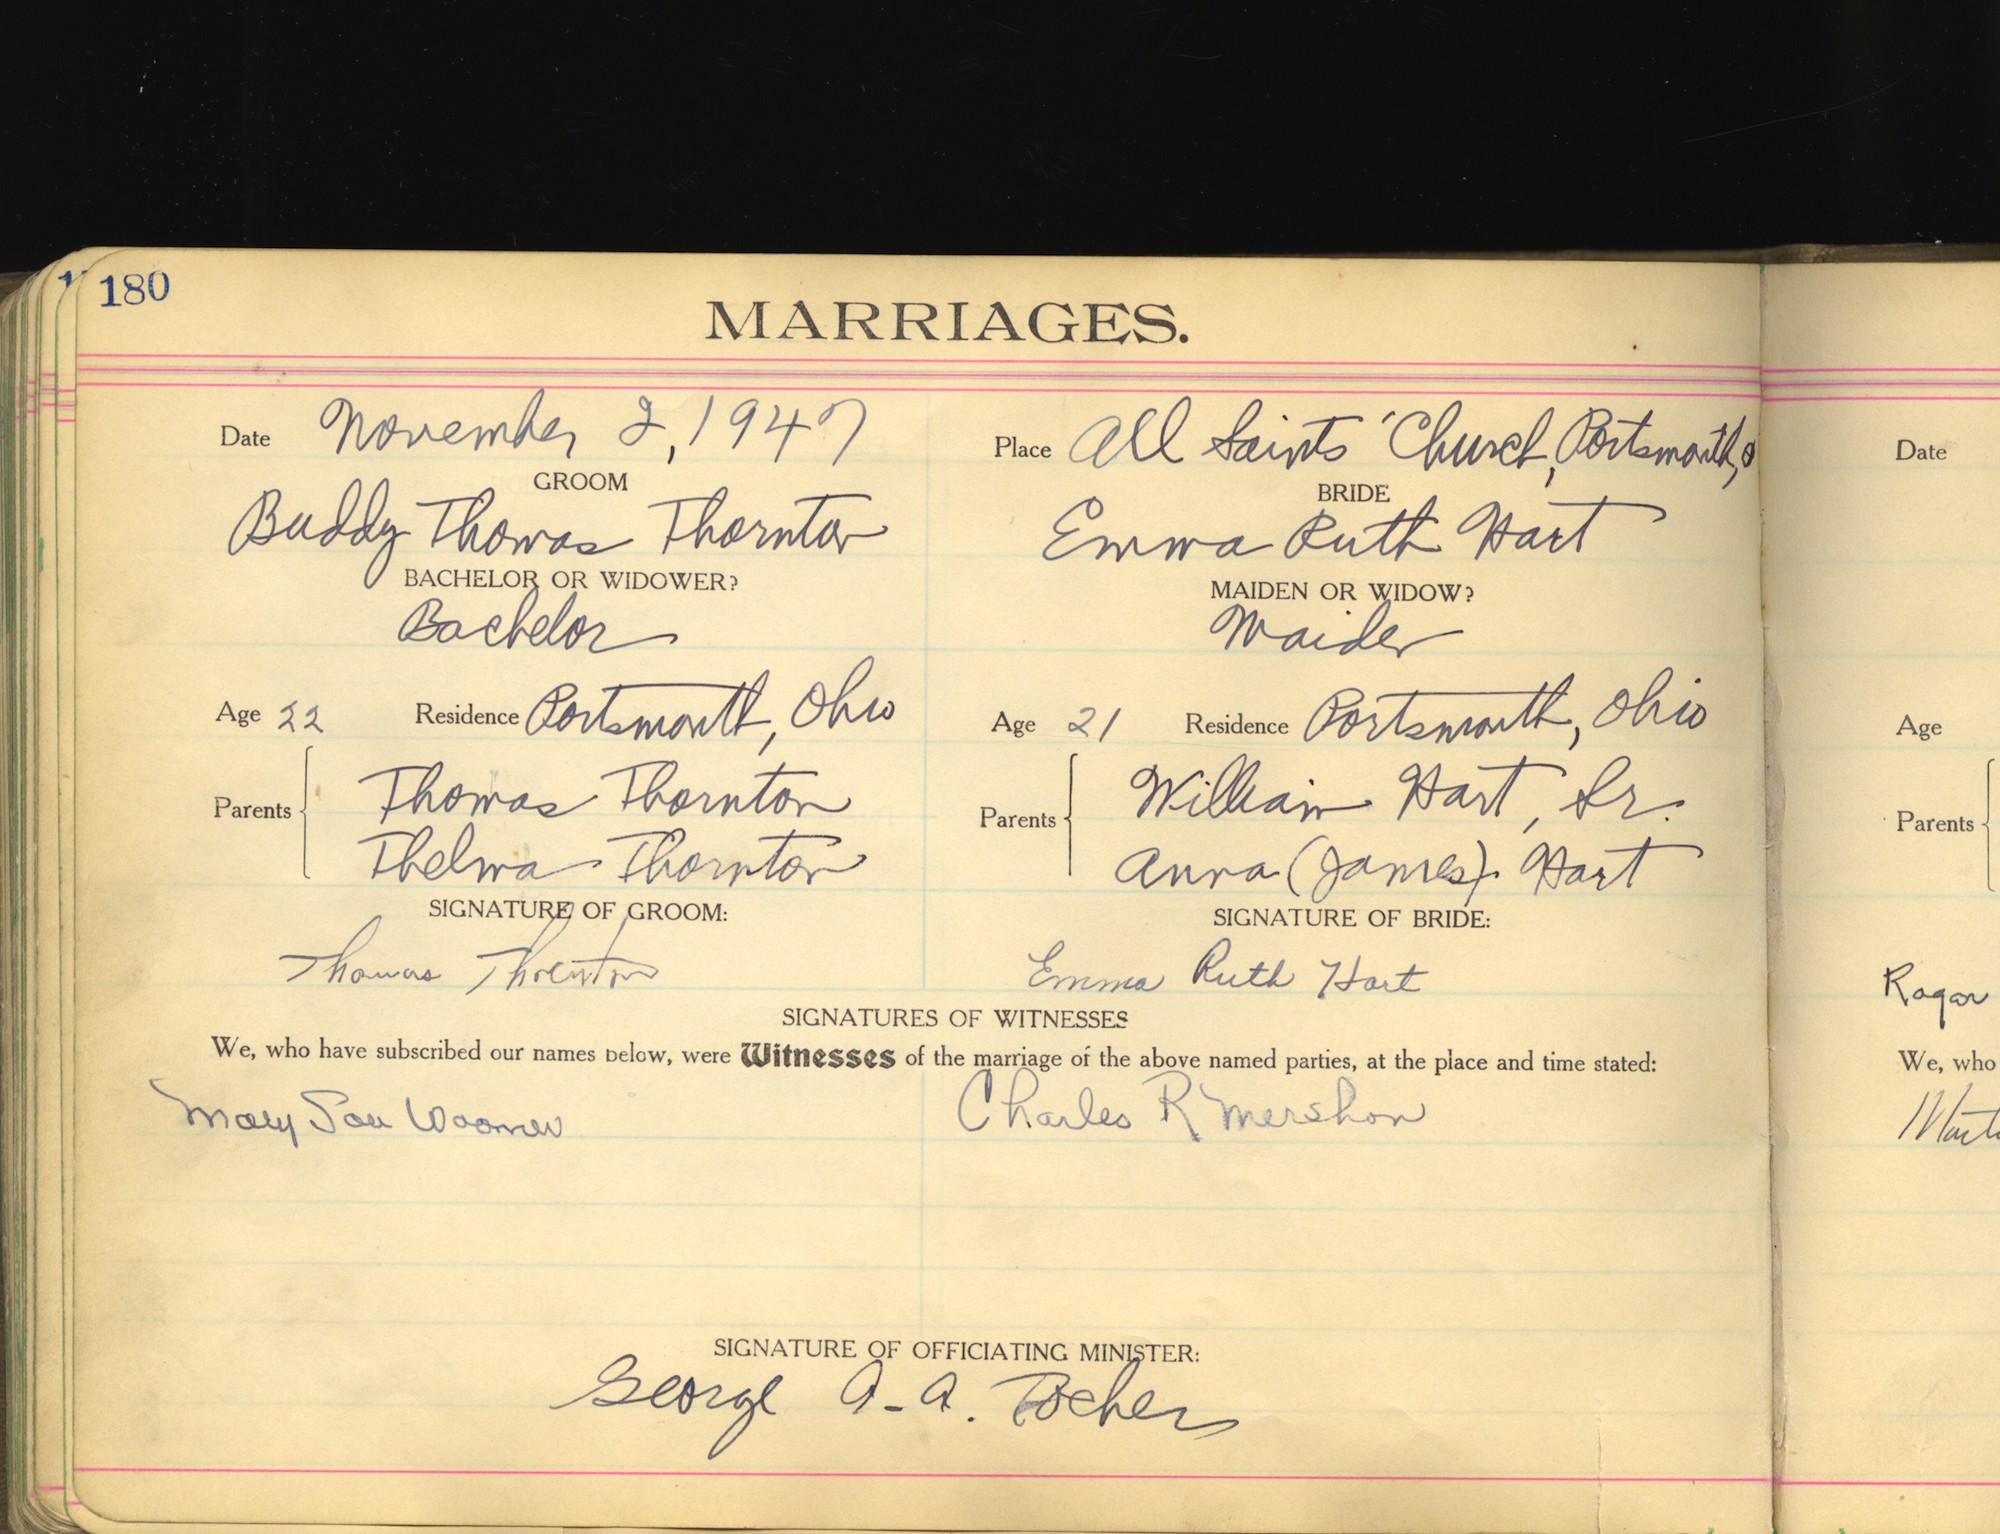 180
MARRIAGES.
Date November 2, 1947
Place All Saints' Church, Portsmouth, O
GROOM
BRIDE
Buddy Thomas Thornton
Emma Ruth Hart
BACHELOR OR WIDOWER?
MAIDEN OR WIDOW?
Bachelor
Maiden
Age 22 Residence Portsmouth, Ohio
Age 21 Residence Portsmouth, Ohio
Parents
Thomas Thornton
Thelma Thornton
Parents
William Hart, Sr.
Anna (James) Hart
SIGNATURE OF GROOM:
SIGNATURE OF BRIDE:
Thomas Thornton
Emma Ruth Hart
SIGNATURES OF WITNESSES
We, who have subscribed our names below, were Witnesses of the marriage of the above named parties, at the place and time stated:
Mary Lou
Charles R Mershon
SIGNATURE OF OFFICIATING MINISTER:
George A. A. Tocher
Date
Age
Parents
We, who